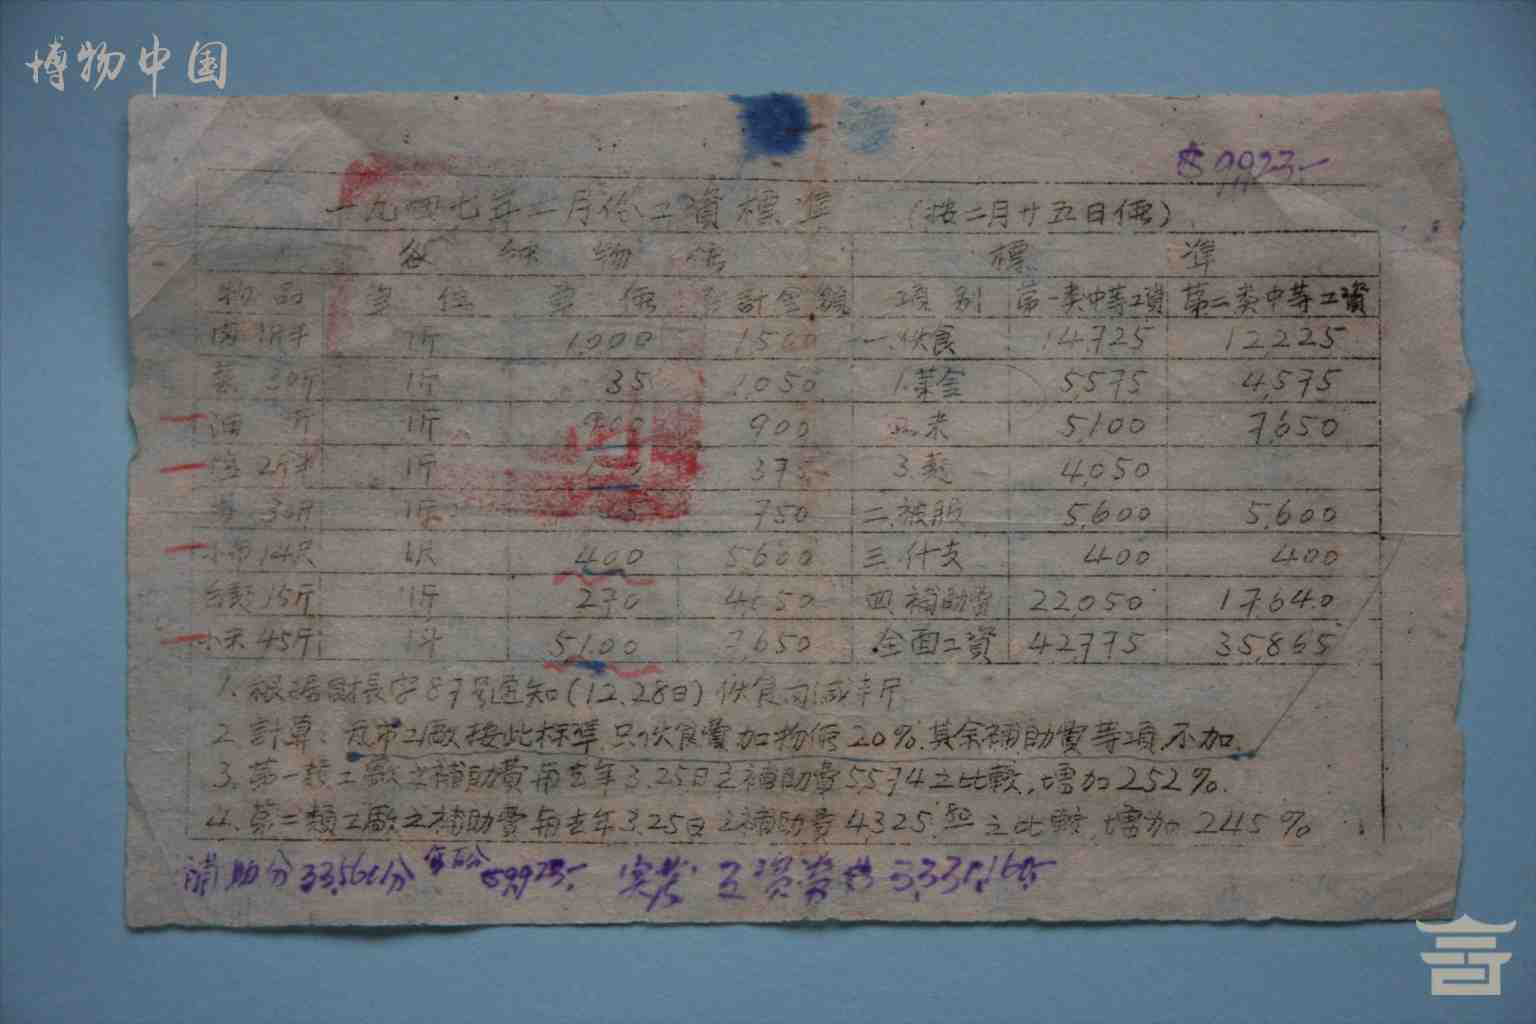 博物中国
9923
一九四七年二月份工資標準 (按二月廿五日價)
各 種 物 價 標 準
物品 單位 單價 合計金額 項別 第一类中等工資 第二类中等工資
肉 1斤半 1斤 1,000 1,500 一.伙食 14,725 12,225
菜 30斤 1斤 35 1,050 1.菜金 5,575 4,575
油 斤 1斤 900 900 2.米 5,100 7,650
塩 2斤半 1斤 375 3.麵 4,050
30斤 1斤 25 750 二.被服 5,600 5,600
小布14尺 1尺 400 5,600 三.什支 400 400
白麵15斤 1斤 270 4,050 四.補助費 22,050 17,640
小米45斤 1斗 5,100 7,650 全面工資 42,775 35,865
1.根据財長字87号通知(12.28日)伙食内減半斤
2.計算:瓦市工廠按此标準.只伙食費加物價20%.其余補助費等項.不加.
3.第一類工廠之補助費每去年3.25日之補助費5,574之比較,增加252%.
4.第二類工廠之補助費每去年3.25日之補助費4325.50之比較,增加245%
補助分 分 每百分 實發工資券共